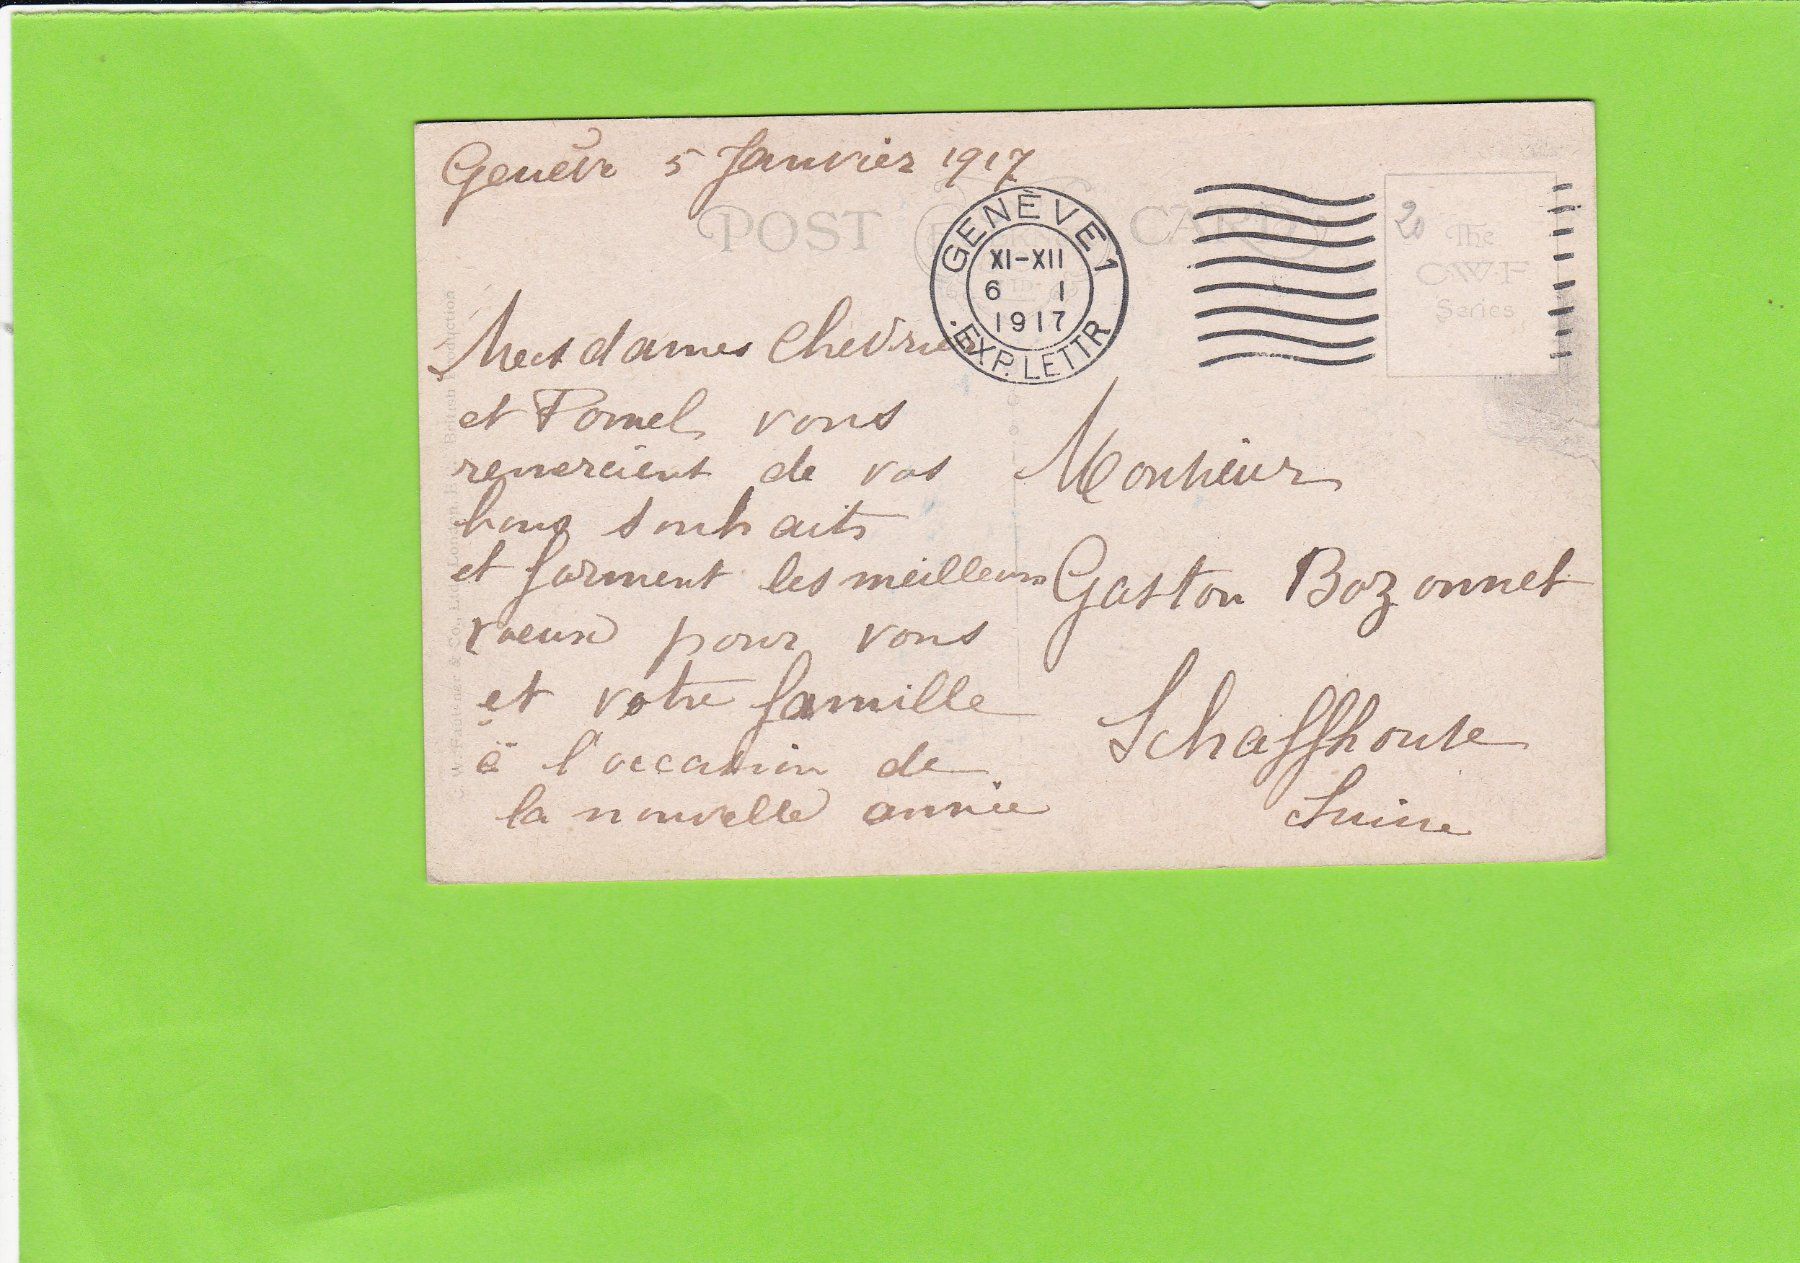 Genève 5 Janvier 1917
POST CARD
GENÈVE 1
XI-XII
6 I
1917
EXP. LETTR.
20
The
CWF
Series
Mesdames Chevrier
et Pomel vous
remercient de vos
bons souhaits
et forment les meilleurs
voeux pour vous
et votre famille
à l'occasion de
la nouvelle année
Monsieur
Gaston Bozonnet
Schaffhouse
Suisse
C. W. Faulkner & Co., Ltd., London, E.C. British Production